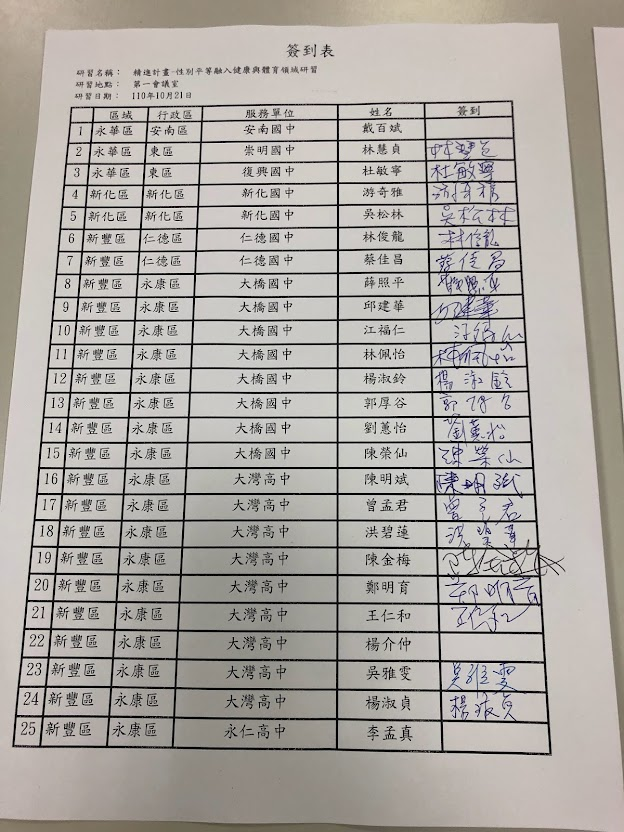 簽到表
研習名稱： 精進計畫-性別平等融入健康與體育領域研習
研習地點： 第一會議室
研習日期： 110年10月21日
區域 行政區 服務單位 姓名 簽到
1 永華區 安南區 安南國中 戴百斌
2 永華區 東區 崇明國中 林慧貞
3 永華區 東區 復興國中 杜敏寧 杜敏寧
4 新化區 新化區 新化國中 游奇雅
5 新化區 新化區 新化國中 吳松林 吳松林
6 新豐區 仁德區 仁德國中 林俊龍 林俊龍
7 新豐區 仁德區 仁德國中 蔡佳昌 蔡佳昌
8 新豐區 永康區 大橋國中 薛照平
9 新豐區 永康區 大橋國中 邱建華 邱建華
10 新豐區 永康區 大橋國中 江福仁
11 新豐區 永康區 大橋國中 林佩怡 林佩怡
12 新豐區 永康區 大橋國中 楊淑鈴 楊淑鈴
13 新豐區 永康區 大橋國中 郭厚谷 郭厚谷
14 新豐區 永康區 大橋國中 劉蕙怡 劉蕙怡
15 新豐區 永康區 大橋國中 陳榮仙 陳榮仙
16 新豐區 永康區 大灣高中 陳明斌 陳明斌
17 新豐區 永康區 大灣高中 曾孟君 曾孟君
18 新豐區 永康區 大灣高中 洪碧蓮
19 新豐區 永康區 大灣高中 陳金梅
20 新豐區 永康區 大灣高中 鄭明育 鄭明育
21 新豐區 永康區 大灣高中 王仁和 王仁和
22 新豐區 永康區 大灣高中 楊介仲
23 新豐區 永康區 大灣高中 吳雅雯 吳雅雯
24 新豐區 永康區 大灣高中 楊淑貞 楊淑貞
25 新豐區 永康區 永仁高中 李孟真